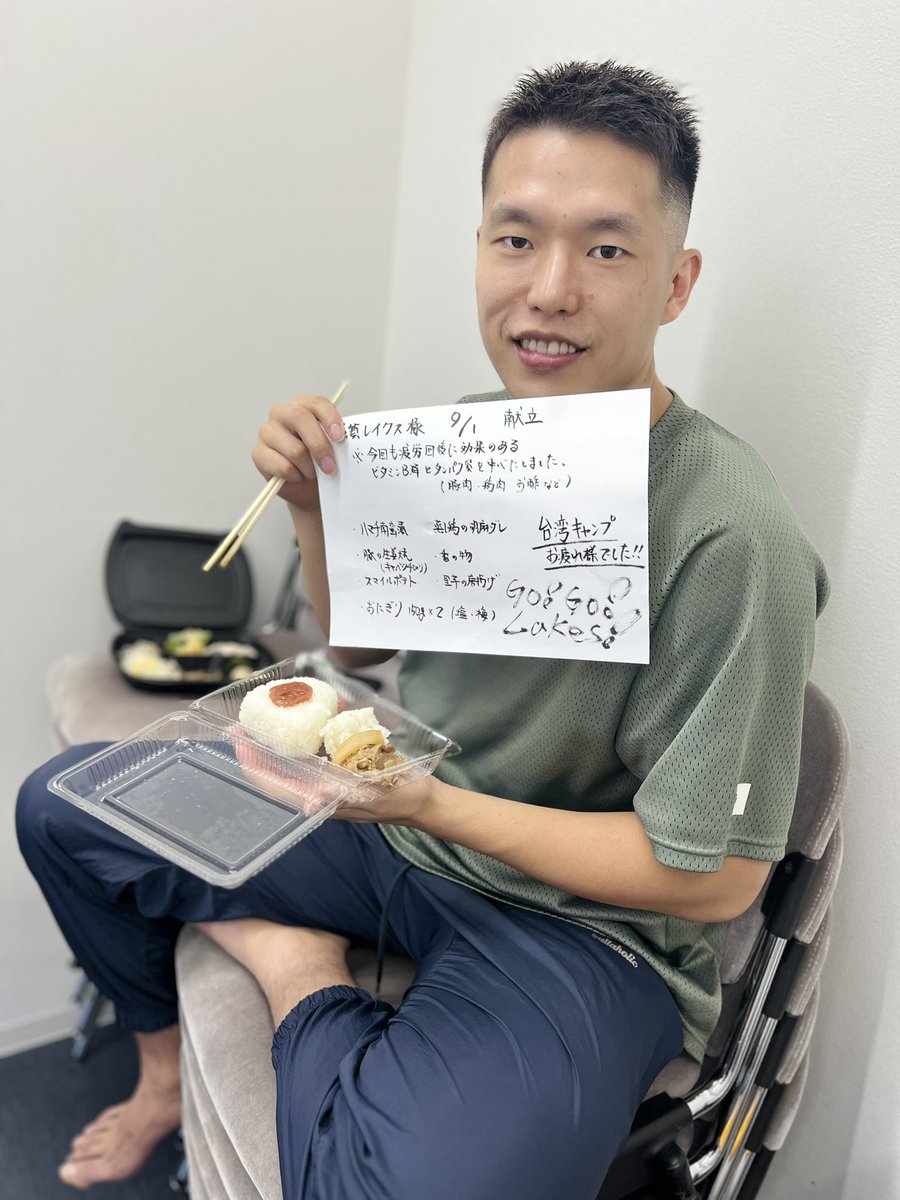 賀レイクス様 9/1 献立
※今回も疲労回復に効果のある
ビタミンB群とタンパク質を中心にしました。
(豚肉・鶏肉 お酢など)
・ハマチ南蛮漬
蒸し鶏の胡麻ダレ
・豚の生姜焼
(キャベツ
・香の物
・スマイルポテト
・里芋の唐揚げ
・おにぎり 150g×2 (塩・梅)
台湾キャンプ
お疲れ様でした!!
Go! Go!
Lakes!
ballaholic